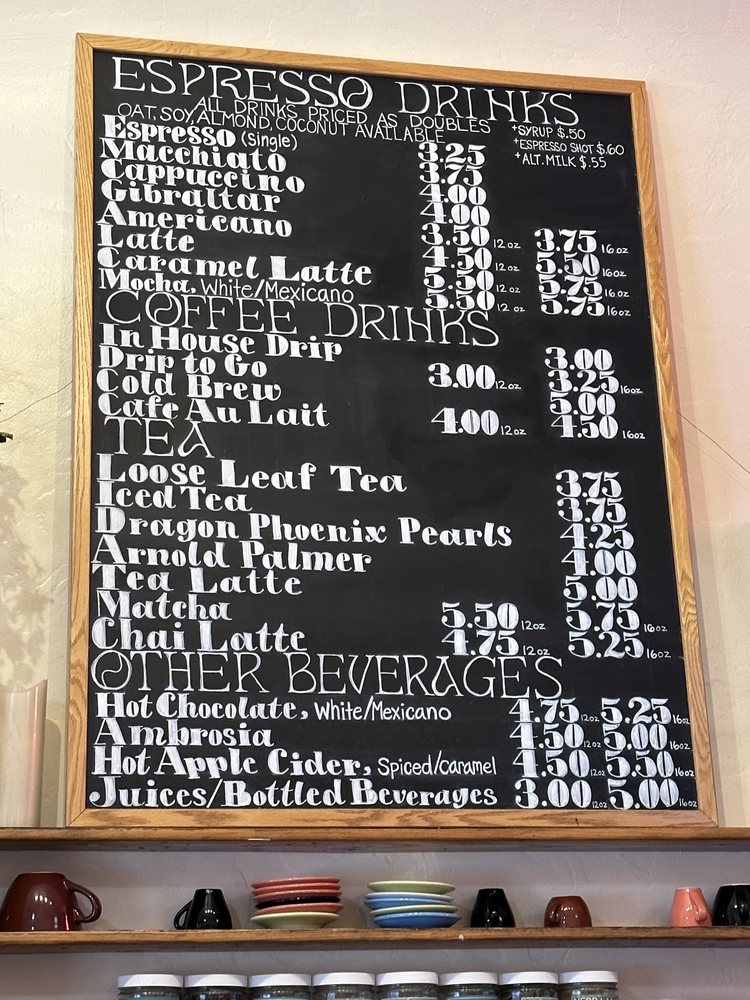 ESPRESSO DRINKS
ALL DRINKS PRICED AS DOUBLES
OAT, SOY, ALMOND, COCONUT AVAILABLE
+SYRUP $.50
+ESPRESSO SHOT $.60
+ALT. MILK $.55
Espresso (single) 3.25
Macchiato 3.75
Cappuccino 4.00
Gibraltar 4.00
Americano 3.50 12 oz 3.75 16 oz
Latte 4.50 12 oz 5.50 16 oz
Caramel Latte 5.50 12 oz 5.75 16 oz
Mocha, White/Mexicano 5.50 12 oz 5.75 16 oz
COFFEE DRINKS
In House Drip 3.00
Drip to Go 3.00 12 oz 3.25 16 oz
Cold Brew 5.00
Cafe Au Lait 4.00 12 oz 4.50 16 oz
TEA
Loose Leaf Tea 3.75
Iced Tea 3.75
Dragon Phoenix Pearls 4.25
Arnold Palmer 4.00
Tea Latte 5.00
Matcha 5.50 12 oz 5.75 16 oz
Chai Latte 4.75 12 oz 5.25 16 oz
OTHER BEVERAGES
Hot Chocolate, White/Mexicano 4.75 12 oz 5.25 16 oz
Ambrosia 4.50 12 oz 5.00 16 oz
Hot Apple Cider, Spiced/caramel 4.50 12 oz 5.50 16 oz
Juices/Bottled Beverages 3.00 12 oz 5.00 16 oz